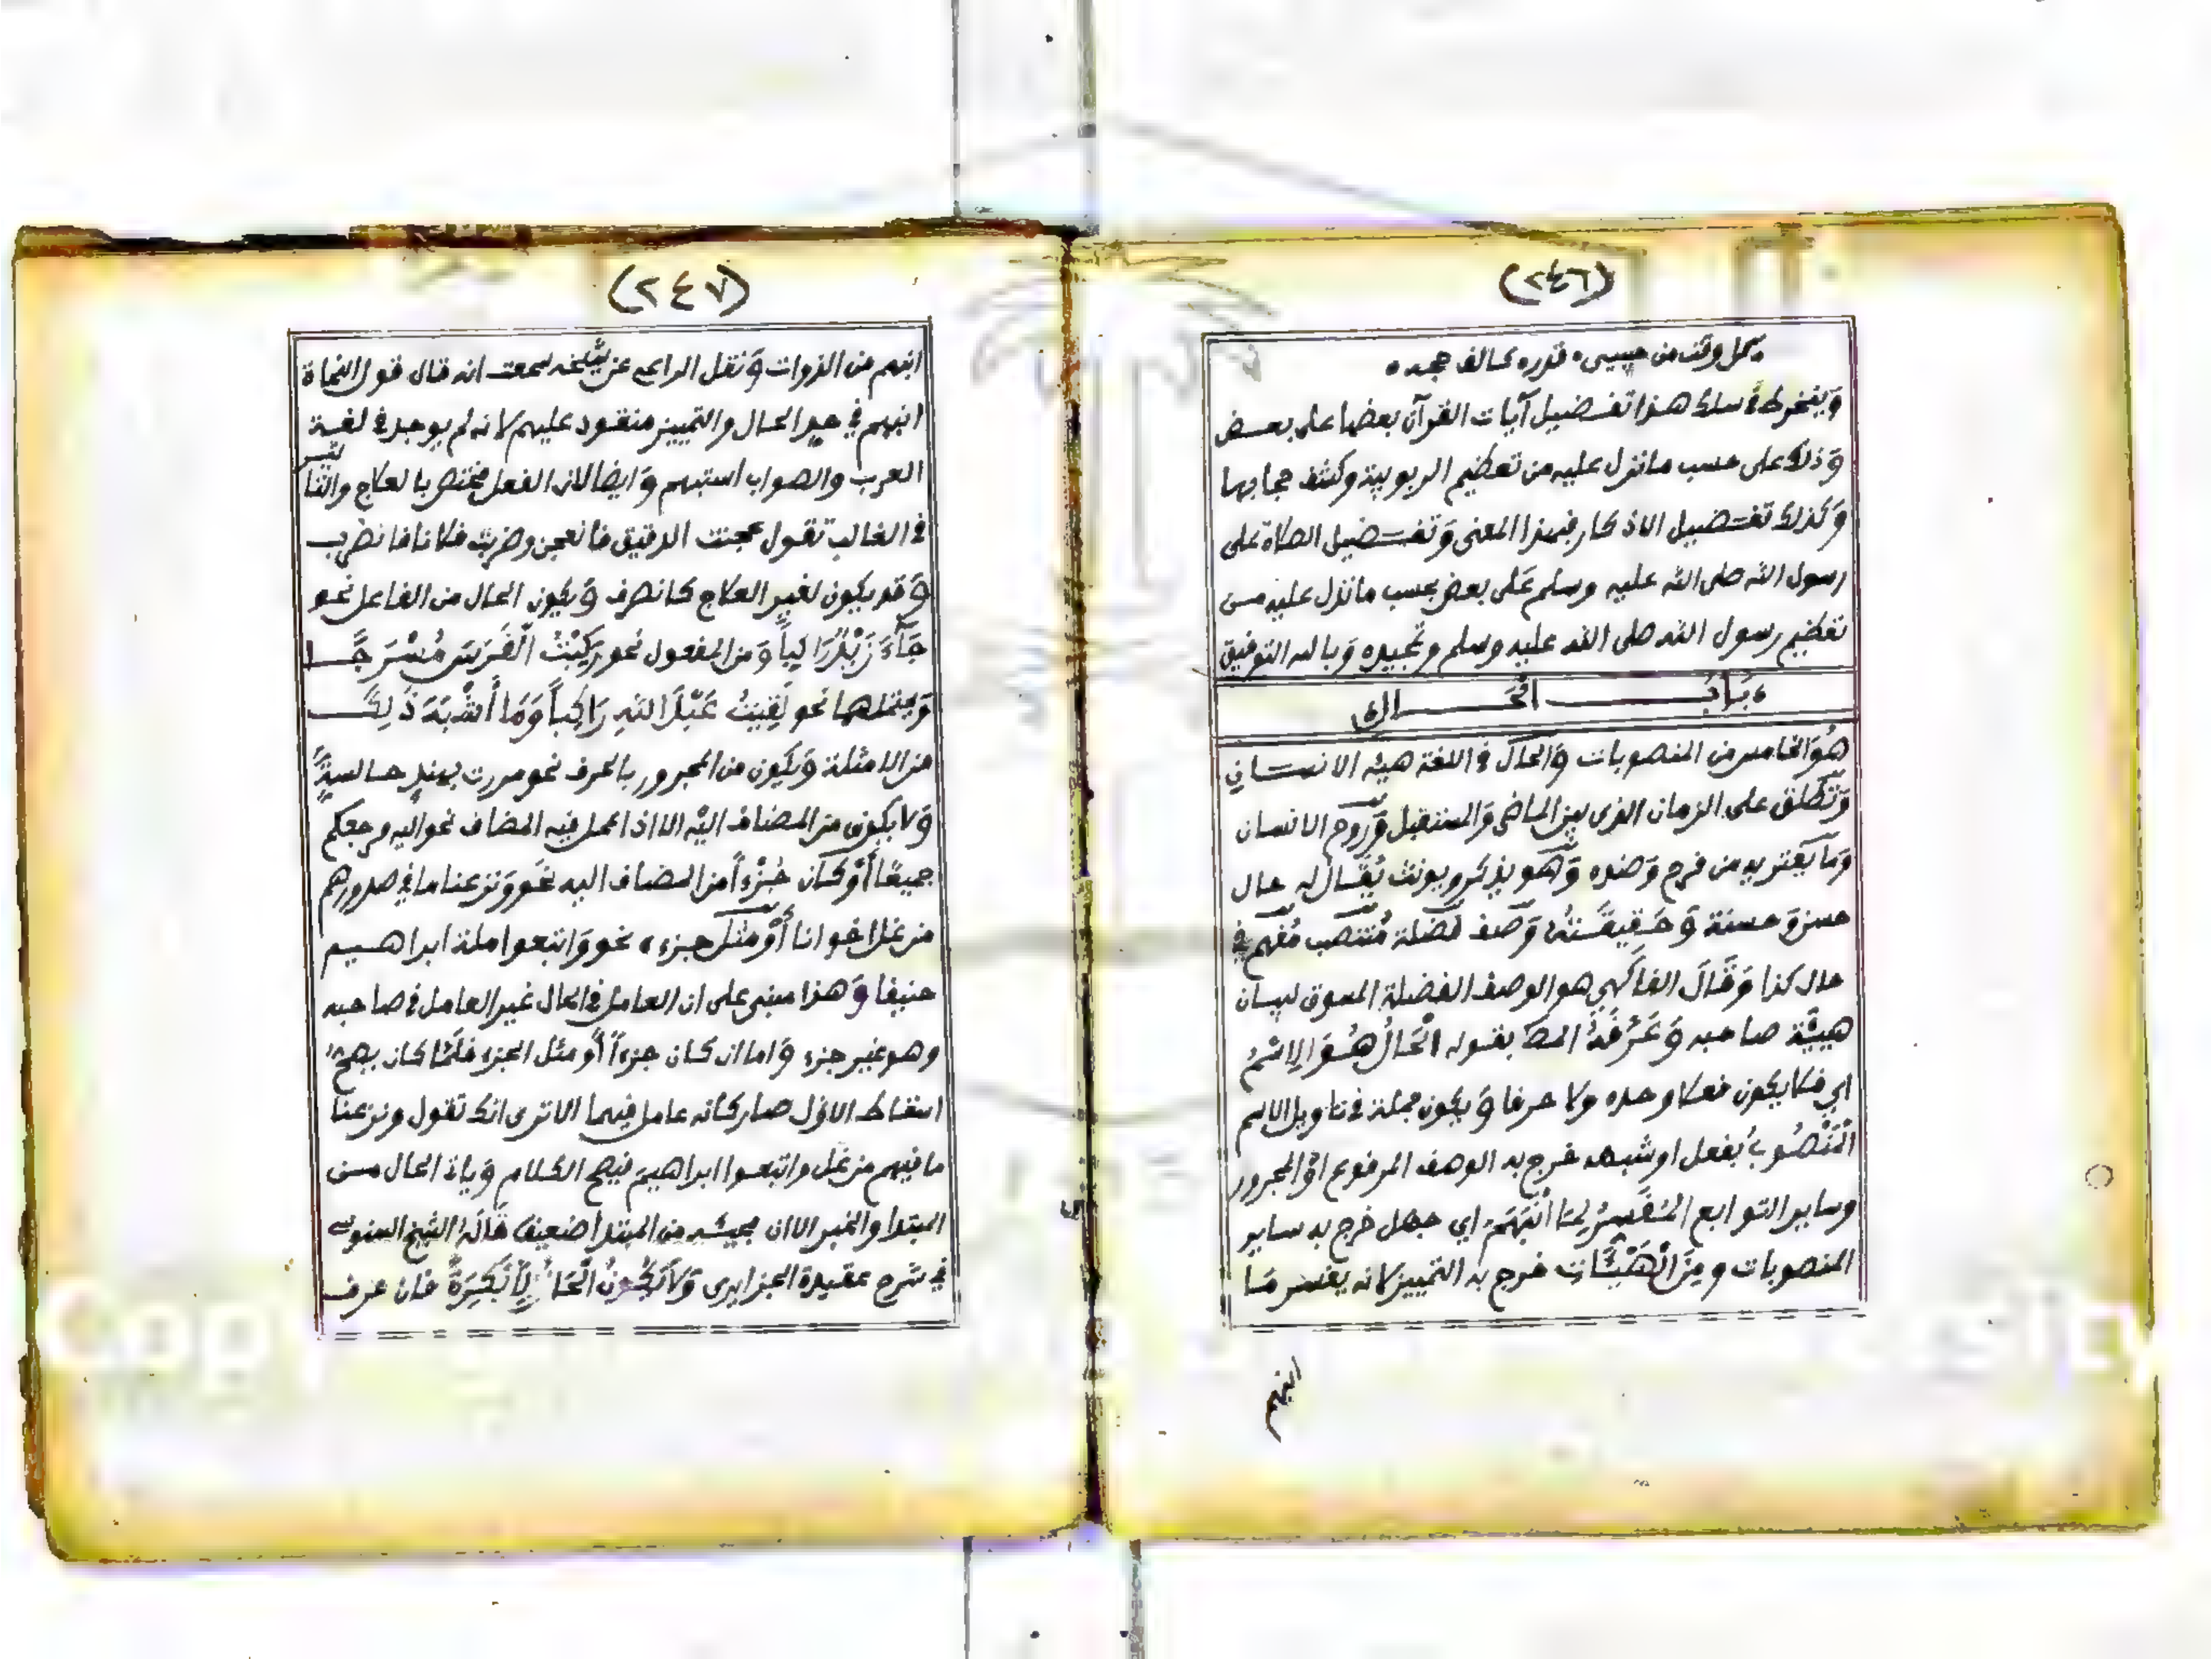 (٢٤٦)
بكل وقت من حبيبي قدره كالف حجه
وينخرط في سلك هذا تفضيل آيات القرآن بعضها على بعض
وَذلك على حسب ما نزل عليه من تعظيم الربوبية وكشف حجابها
وَكذلك تفضيل الاذكار فبهذا المعنى وَتفضيل الصلاة على
رسول الله صلى الله عليه وسلم عَلى بعض بحسب ما نزل عليه من
تعظيم رسول الله صلى الله عليه وسلم وتمجيده وَبالله التوفيق
بَابُ الْحَالِ
هُوَ الخامس من المنصوبات وَالحال في اللغة هيئه الانسان
وَتطلق على الزمان الذي بين الماضي وَالمستقبل وَروح الانسان
وَما يَعتريه من فرح وَضده وَهو يذكر ويونث يُقَال له حال
حسن وَحسنة وَحَقِيقَتُهُ وَصف فضلة مُنتصب مُفهم في
حال كذا وَقَالَ الفاكهي هو الوصف الفضلة المسوق لبيان
هيئَة صاحبه وَعَرَّفَهُ المص بقوله الْحَالُ هُوَ الِاسْمُ
اي فلا يكون فعلا وحده ولا حرفا وَيكون جملة في تاويل الاسم
الْمَنْصُوبُ بفعل او شبهه خرج به الوصف المرفوع اوْ المجرور
وساير التوابع الْمُفَسِّرُ لِمَا انْبَهَمَ اي جهل خرج به ساير
المنصوبات و مِنَ الْهَيْئَاتِ خرج به التمييز لانه يفسر مَا
انبهم
(٢٤٧)
انبهم من الذوات وَنقل الراعي عن شيخه سمعت انه قال قول النحاة
انبهم في حد الحال والتمييز منقود عليهم لانه لم يوجد في لغة
العرب والصواب استبهم وَايضا لان الفعل مختص بالعلاج والتاثير
في الغالب تقول عجنت الدقيق فانعجن وضربت فلانا فانضرب
وَقد يكون لغير العلاج كانصرف وَيكون الحال من الفاعل نحو
جَآءَ زَيْدٌ رَاكِباً وَمن المفعول نحو رَكِبْتُ الْفَرَسَ مُسْرَجًا
وَيحتملهما نحو لَقِيتُ عَبْدَ اللهِ رَاكِباً وَمَا أَشْبَهَ ذَلِكَ
من الامثلة وَيكون من المجرور بالحرف نحو مررت بهندٍ جالسةً
وَلا يكون من المضاف اليْه الا اذا عمل فيه المضاف نحو اليه مرجعكم
جميعًا أَوْ كَان جُزْءاً من المضاف اليه نحَو وَنزعنا ما في صدورهم
من غل اخوانا أَوْ مثل جزء ه نحو وَاتبعوا ملة ابراهيم
حنيفا وَهذا مبني على ان العامل في الحال غير العامل في صاحبه
وهو غير جزء وَاما ان كان جزءاً أو مثل الجزء فلمَّا كان يصح
اسقاط الاول صار كانه عامل فيهما الا ترى انك تقول ونزعنا
ما فيهم من غل واتبعوا ابراهيم فيصح الكلام وَياتي الحال من
المبتدا والخبر الا ان مجيئه من المبتدا ضعيف قالَهُ الشيخ السنوسي
في شرح عقيدة الجزايري وَلَا يَكُونُ الْحَالُ إِلَّا نَكِرَةً فان عرف